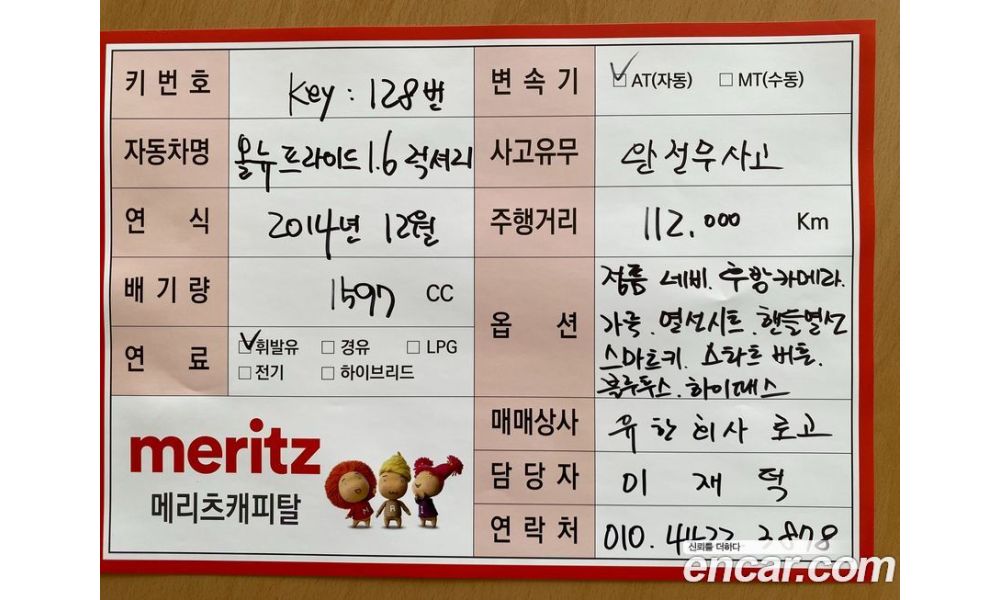 키번호 Key : 128번
변속기 AT(자동) MT(수동)
자동차명 올뉴프라이드1.6 럭셔리
사고유무 완전무사고
연식 2014년 12월
주행거리 112.000 Km
배기량 1597 CC
옵션 정품 네비. 후방카메라.
가죽. 열선시트. 핸들열선
스마트키. 스타트 버튼.
블루투스. 하이패스
연료 휘발유 경유 LPG
전기 하이브리드
meritz
메리츠캐피탈
매매상사 유한회사 로고
담당자 이재덕
연락처 010.
신뢰를 더하다
encar.com